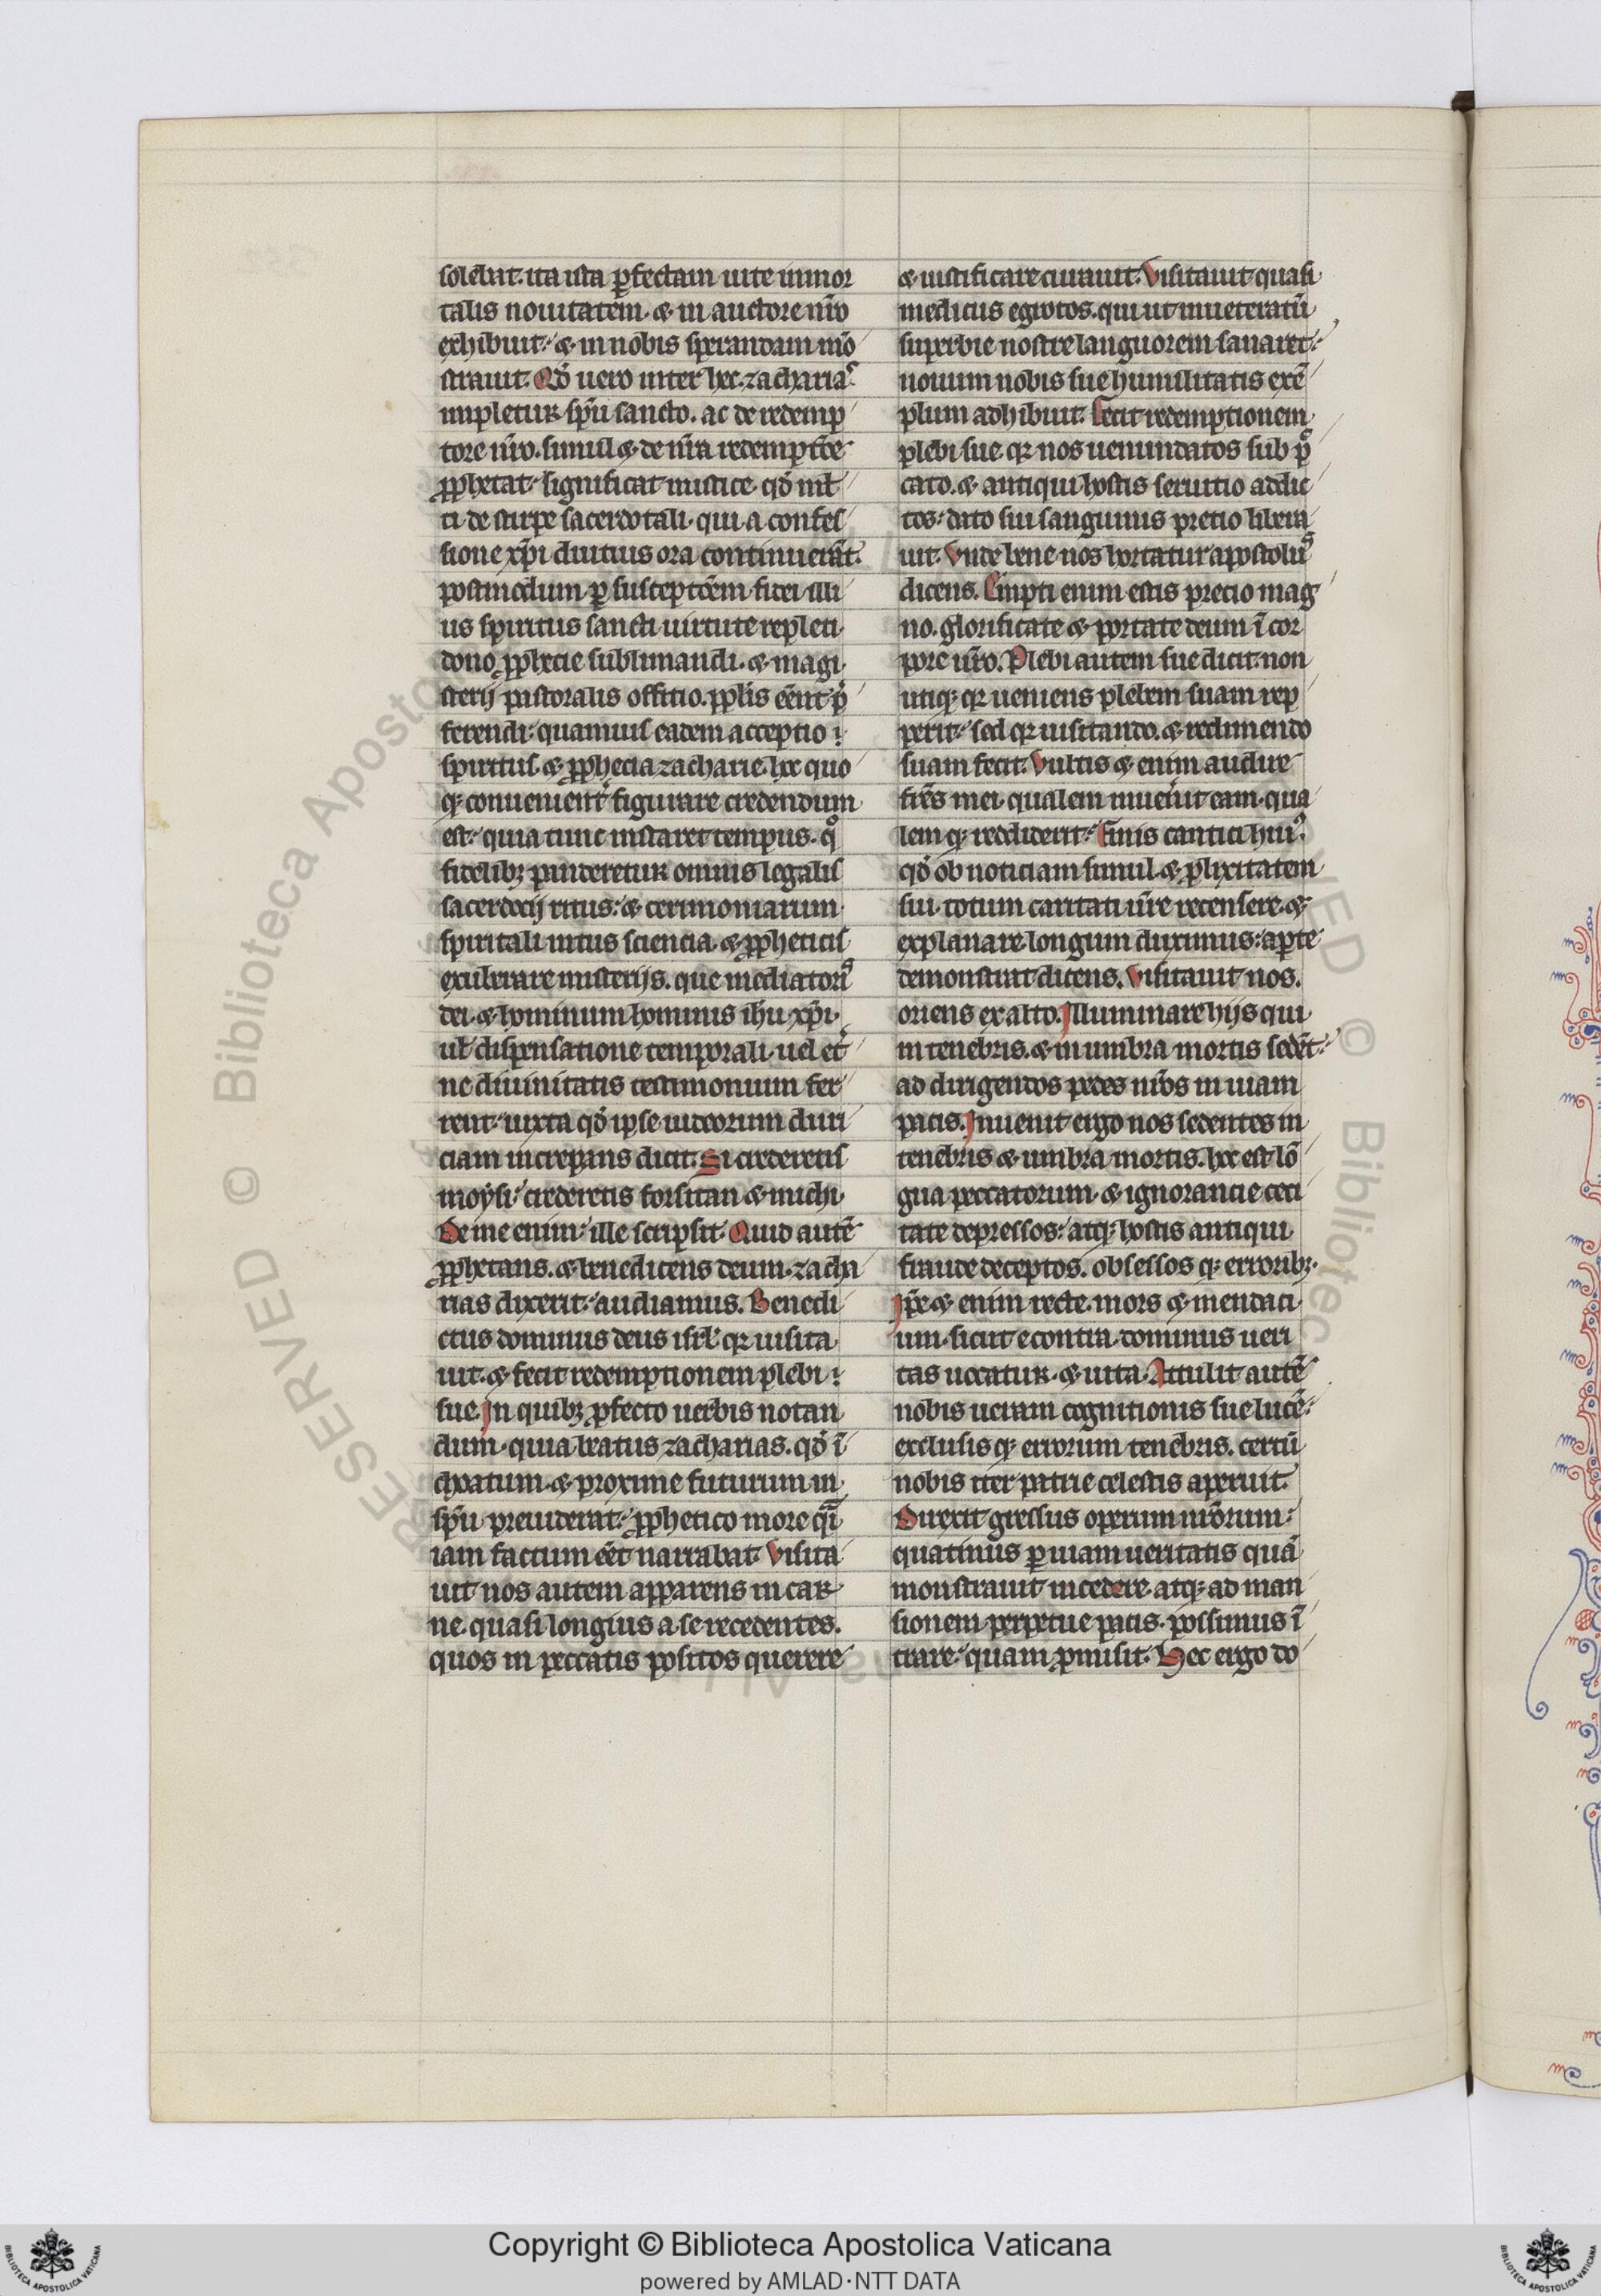 solebat. ita ista ꝑfectam uite inmor
talis nouitatem. ⁊ in auctore nr̄o
exhibuit: ⁊ in nobis sperandam mō
strauit. Qd̄ uero inter hec. zacharias
impletur sp̄u sancto. ac de redemp
tore nr̄o. simul ⁊ de nr̄a redemptōe
ꝓphetat: significat mistice. qd̄ ml̄
ti de stirpe sacerdotali. qui a confes
sione xp̄i diutius ora continuerāt.
postmodum ꝑ susceptōem fidei illi
us spiritus sancti uirtute repleti.
dono ꝓphecie sublimandi. ⁊ magi
sterij pastoralis offitio. pp̄lis eēnt p̄
ferendi: quamuis eadem acceptio
spiritus ⁊ ꝓphecia zacharie. hoc quo
qꝫ conuenient̄ figurare credendum
est: quia tunc instaret tempus. qº
fidelibꝫ panderetur omnis legalis
sacerdocij ritus: ⁊ cerimoniarum
spiritali intus sciencia. ⁊ ꝓpheticis
exuberare misterijs. que mediatoriꝰ
dei. ⁊ hominum hominis ih̄u xp̄i.
ul̄ dispensatione temporali. uel et̄
ne diuinitatis testimonium fer
rent: iuxta qd̄ ipse iudeorum duri
ciam increpans dicit. Si crederetis
moysi: crederetis forsitan ⁊ michi.
De me enim: ille scripsit. Quid autē
ꝓphetans. ⁊ benedicens deum. zacha
rias dixerit: audiamus. Benedi
ctus dominus deus isrl̄. qꝛ uisita
uit. ⁊ fecit redemptionem plebi
sue. In quibꝫ ꝓfecto uerbis notan
dum. quia beatus zacharias. qd̄ ī
choatum. ⁊ proxime futurum in
sp̄u preuiderat: ꝓphetico more q̄i
iam factum eēt narrabat. Visita
uit nos autem apparens in car
ne. quasi longius a se recedentes.
quos in peccatis positos querere
⁊ iustificare curauit. Visitauit quasi
medicus egrotos. qui ut inueteratū
superbie nostre languorem sanaret:
nouum nobis sue humilitatis exē
plum adhibuit. Fecit redemptionem
plebi sue. qꝛ nos uenundatos sub pc̄
cato. ⁊ antiqui hostis seruitio addic
tos: dato sui sanguinis pretio libera
uit. Vnde bene nos hortatur apostolꝰ
dicens. Empti enim estis precio mag
no. glorificate ⁊ portate deum ī cor
pore ur̄o. Plebi autem sue dicit: non
utiqꝫ qꝛ ueniens plebem suam rep
perit: sed qꝛ uisitando. ⁊ redimendo
suam fecit. Vultis ⁊ enim audire
fr̄es mei. qualem inuenit eam. qua
lem qꝫ reddiderit: Finis cantici huiꝰ.
qd̄ ob noticiam simul ⁊ ꝓlixitatem
sui. totum caritati ur̄e recensere. ⁊
explanare longum duximus: aꝑte
demonstrat dicens. Visitauit nos.
oriens ex alto. Illuminare hijs qui
in tenebris. ⁊ in umbra mortis sedēt:
ad dirigendos pedes nr̄os in uiam
pacis. Inuenit ergo nos sedentes in
tenebris ⁊ umbra mortis. hoc est lō
gua peccatorum. ⁊ ignorancie ceci
tate depressos: atqꝫ hostis antiqui
fraude deceptos. obsessos qꝫ erroribꝫ.
Ipse ⁊ enim recte. mors ⁊ mendaci
um. sicut econtra. dominus ueri
tas uocatur. ⁊ uita. Attulit autē
nobis ueram cognitionis sue lucē:
exclusis qꝫ errorum tenebris. certū
nobis iter patrie celestis aperuit.
Direxit gressus operum nr̄orum:
quatinus ꝑ uiam ueritatis quā
monstrauit incedere. atqꝫ ad man
sionem perpetue pacis. possimus ī
trare: quam ꝓmisit. Hec ergo do
Copyright © Biblioteca Apostolica Vaticana
powered by AMLAD·NTT DATA